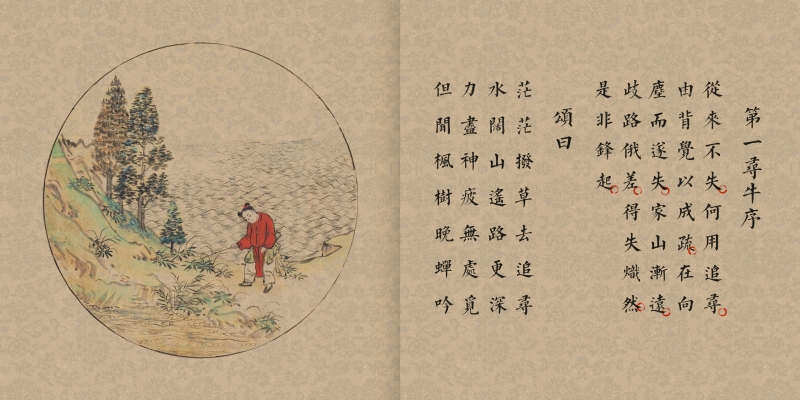 第一尋牛序
從來不失何用追尋
由背覺以成疏在向
塵而遂失家山漸遠
歧路俄差得失熾然
是非鋒起
頌曰
茫茫撥草去追尋
水闊山遙路更深
力盡神疲無處覓
但聞楓樹晚蟬吟